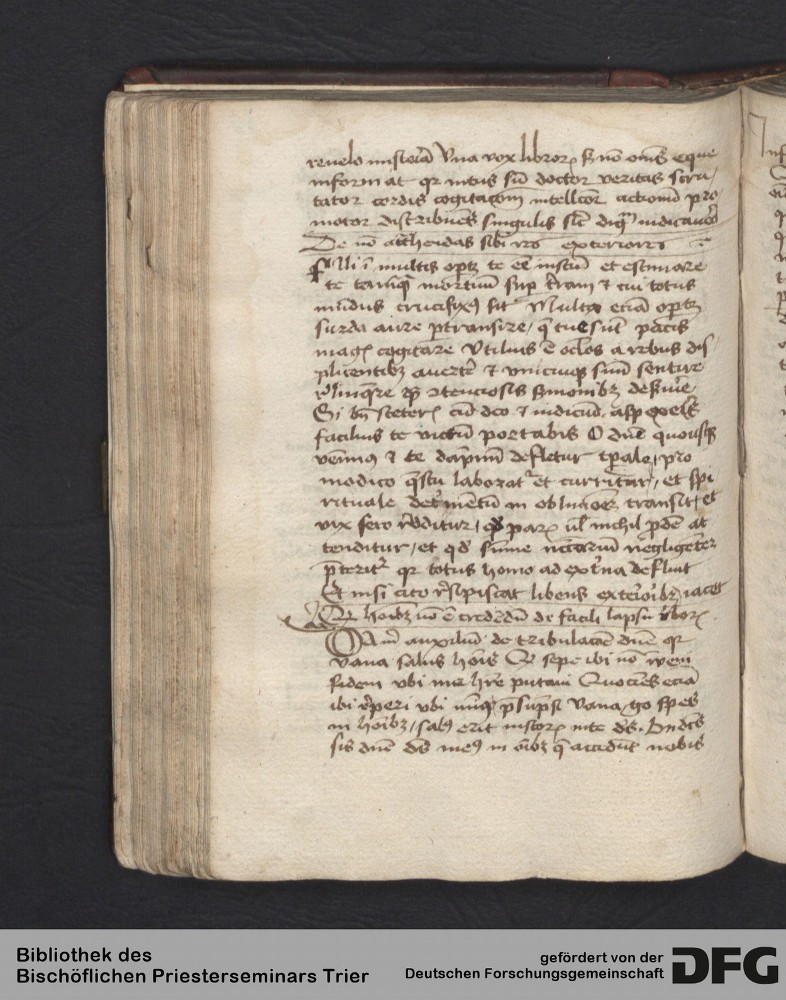 revelo misteria Una vox librorum sed non omnes eque
informat qr intus sum doctor veritatis scru-
tator cordis cogitacionum intellector actionum pro-
motor distribuens singulis sicut dignum iudicavero
De non attrahendis sibi rebus exterioribus
Fili in multis oportet te esse inscium et estimare
te tamquam mortuum super terram et cui totus
mundus crucifixus sit Multa eciam oportet
surda aure pertransire / que tue sunt pacis
magis cogitare Utilius est oculos a rebus dis-
plicentibus avertere et unicuique suum sentire
relinquere quam contenciosis sermonibus deservire
Si bene steteris cum deo et iudicium aspexeris
facilius te victum portabis O domine quousque
venimus et ecce dampnum defletur temporale / pro
modico questu laboratur et curritur / et spi
rituale detrimentum in oblivionem transit / et
vix sero reditur / quod parum vel nichil prodest at
tenditur / et quod summe necessarium negligenter
preteritur qr totus homo ad externa defluit
Et nisi cito resipiscat libens exterioribus iacet
Quod hominibus non est credendum de facili lapsu verborum
DA michi auxilium de tribulacione domine qr
vana salus hominis Quam sepe ibi non inveni
fidem ubi me habere putavi Quociens eciam
ibi reperi ubi minus presumpsi Vana ergo spes
in hominibus / salus erit iustorum in te deus. Benedictus
sis domine deus meus in omnibus que accidunt nobis
Bibliothek des
Bischöflichen Priesterseminars Trier
gefördert von der
Deutschen Forschungsgemeinschaft
DFG